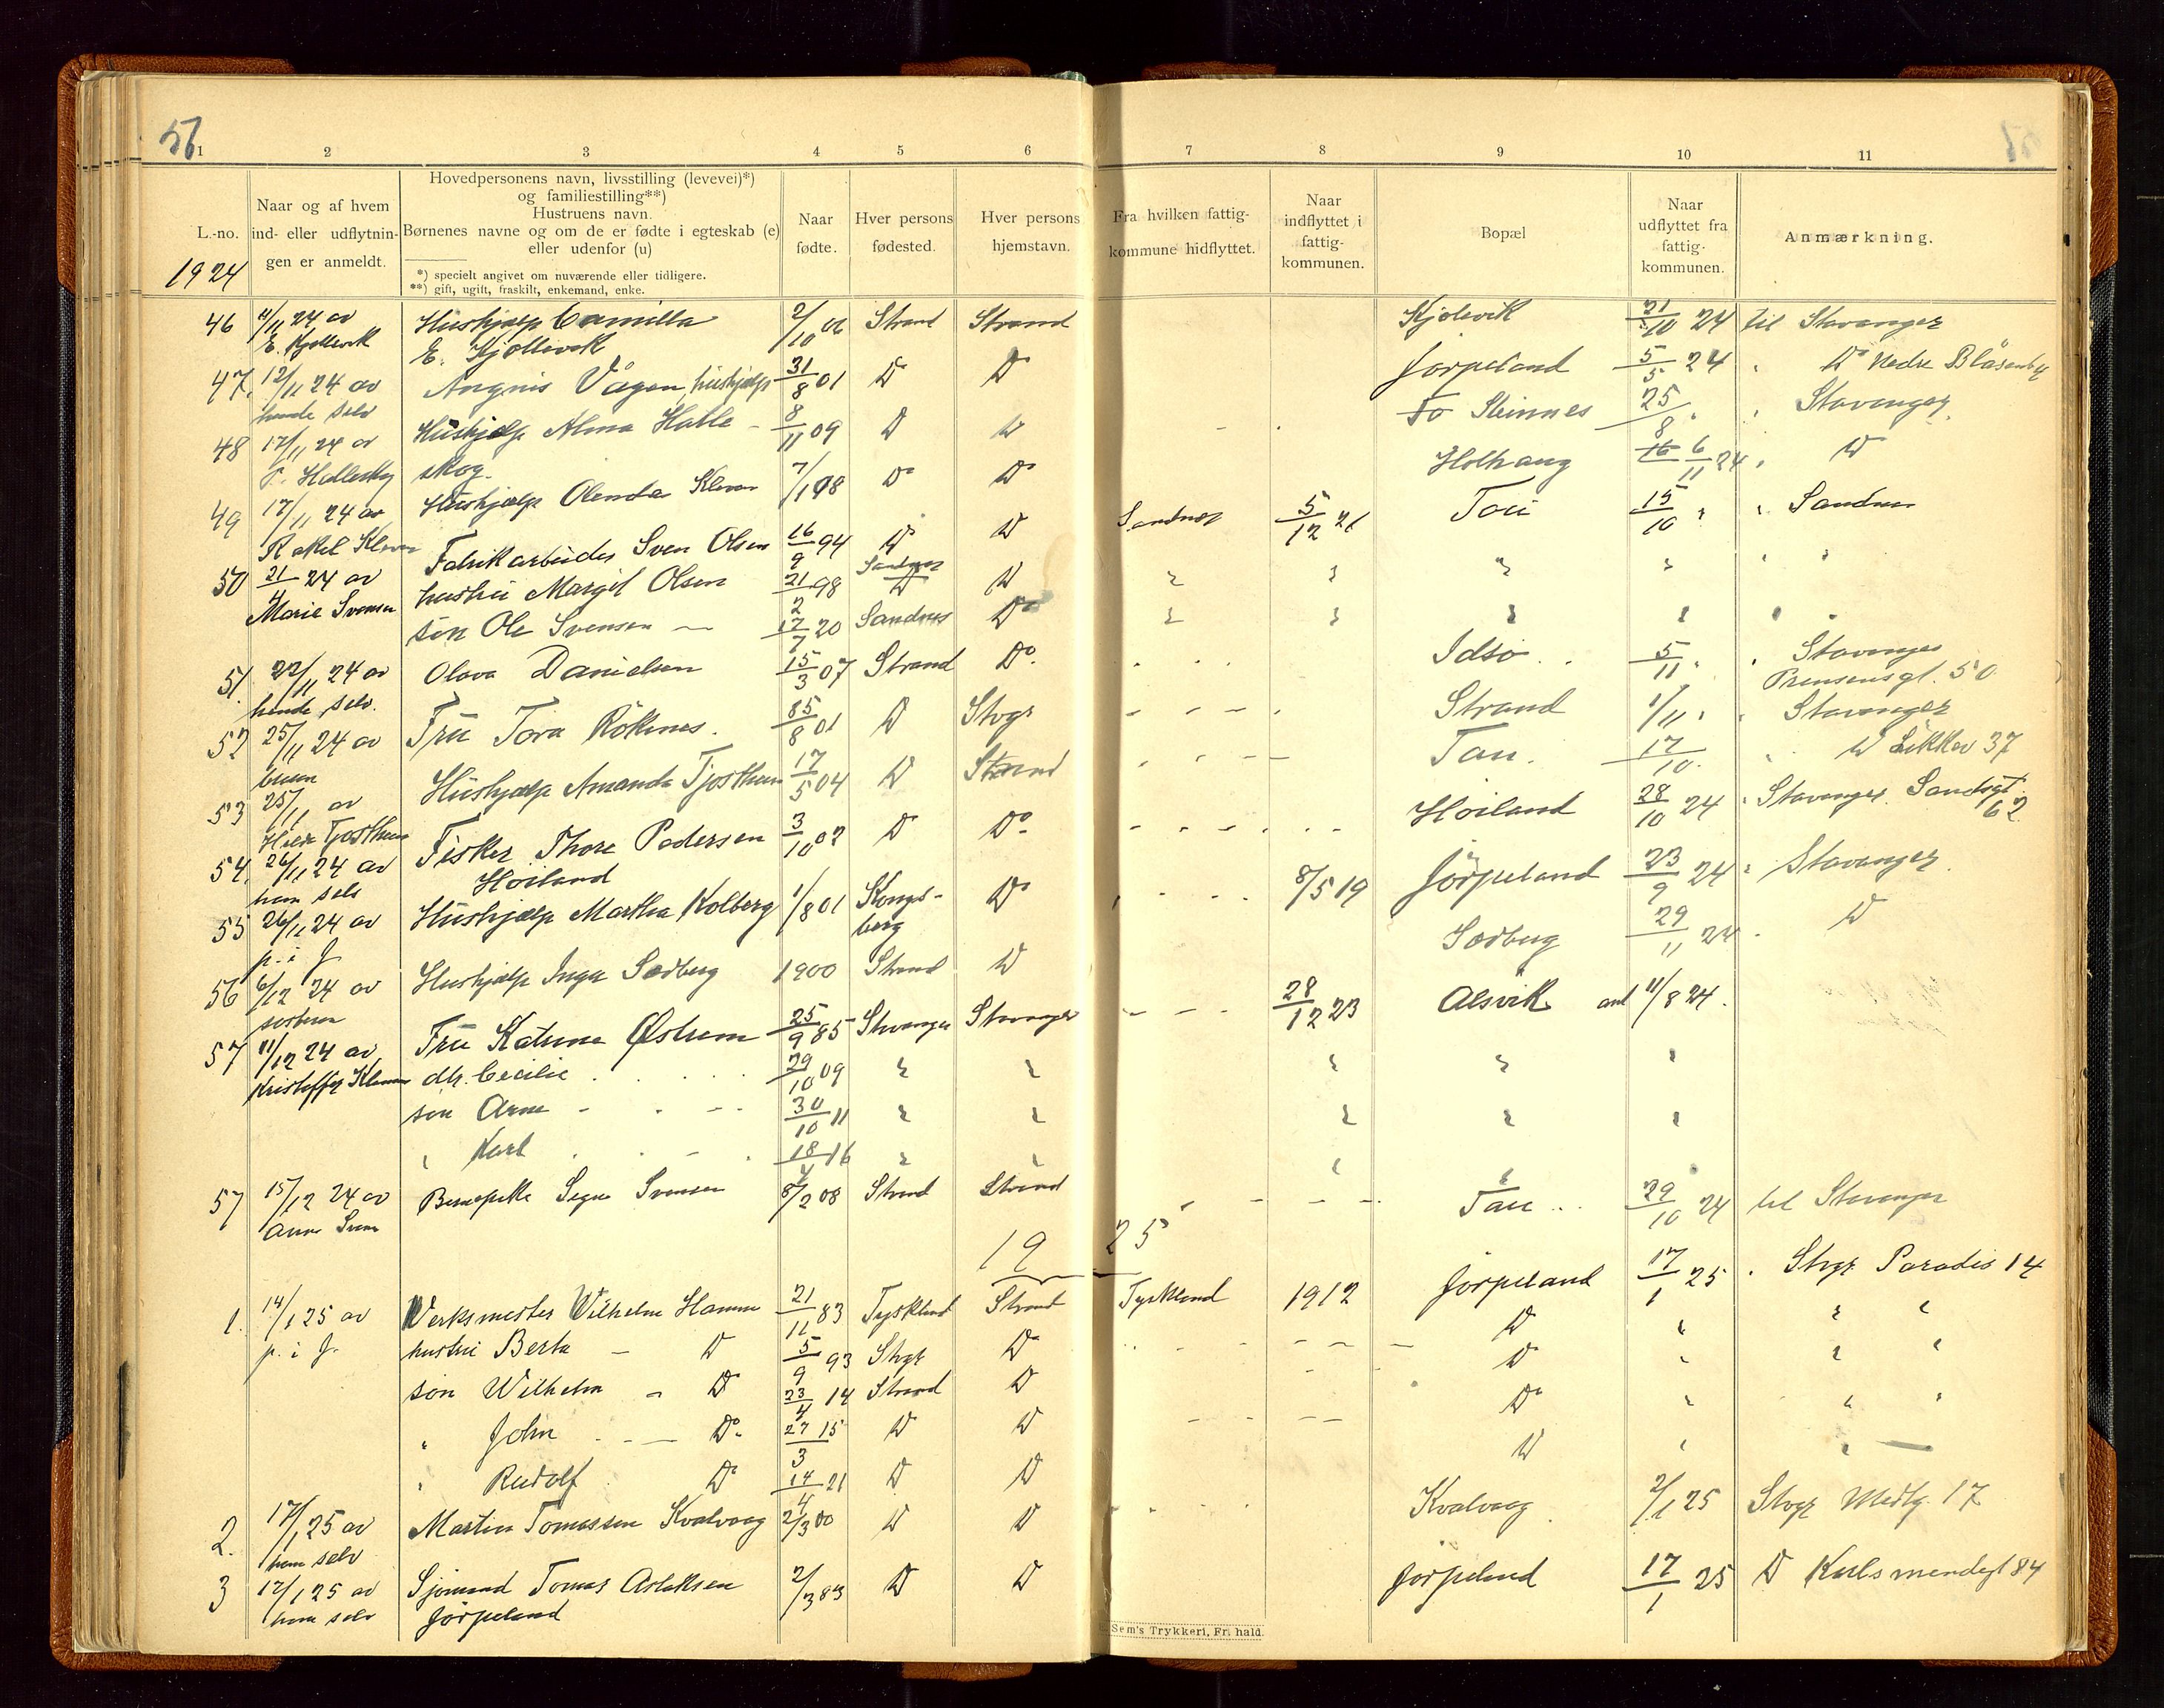 56
1 2 3 4 5 6 7 8 9 10 11
L.-no.
Naar og af hvem
ind- eller udflytnin-
gen er anmeldt.
Hovedpersonens navn, livsstilling (levevei)*)
og familiestilling**)
Hustruens navn.
Børnenes navne og om de er fødte i egteskab (e)
eller udenfor (u)
*) specielt angivet om nuværende eller tidligere.
**) gift, ugift, fraskilt, enkemand, enke.
Naar
fødte.
Hver persons
fødested.
Hver persons
hjemstavn.
Fra hvilken fattig-
kommune hidflyttet.
Naar
indflyttet i
fattig-
kommunen.
Bopæl
Naar
udflyttet fra
fattig-
kommunen.
Anmærkning.
1924
46 11/11 24 av Hushjælp Camilla 2/10 06 Strand Strand Kjølevik 21/10 24 til Stavanger
E. Kjøllevik E. Kjøllevik
47. 12/11 24 av Angnis Vågen, hushjælp 31/8 01 Do Do Jørpeland 5/5 24 " Do Nedre Blåsenby
hende selv
48 17/11 24 av Hushjælp Alma Halle- 8/11 09 Do Do To Steinnes 25/8 " " Stavanger
T. Halleskog skog.
49 17/11 24 av Hushjælp Olenda Kleven 7/1 98 Do Do Holhaug 6/11 24 " Do
Rakel Kleven
50 21/11 24 av Fabrikarbeider Sven Olsen 16/9 94 Do Do Sandnes 5/12 21 Tou 15/10 " " Sandnes
Marie Svensen hustru Margit Olsen 21/2 98 Sandnes Do " " " " " "
søn Ole Svensen 17/7 20 Sandnes Do " " " " " "
51. 22/11 24 av Olava Danielsen 15/3 07 Strand Do. Idsø 5/11 " " Stavanger
hende selv. Prensensgt. 50
52 25/11 24 av Fru Tora Rökenes. 25/8 01 Do Stvgr Strand 1/11 " " Stavanger
53 25/11 av Hushjælp Amanda Tjostheim 17/5 04 Do Strand Tau. 17/10. " Do Løkkev 37
Tjostheim
54. 26/11 24 av Fisker Thore Pedersen 3/10 02 Do Do Høiland 28/10 24 " Stavanger Sandsgt.
ham selv Høiland 62
55 26/11 24 av Hushjælp Martha Kolberg 1/8 01 Kongs- Do 8/5 19 Jørpeland 23/9 24 " Stavanger
p. i J. berg
56 6/12 24 av Hushjælp Inga Sædberg 1900 Strand Do Sædberg 29/11 24 " Do
søsteren
57 11/12 24 av Fru Katrine Østrem 25/9 85 Stavanger Stavanger 28/12 23 Alsvik ant 11/8 24.
Kristoffer dtr. Cecilie 29/10 09 " " " " "
søn Arne 30/10 11 " " " " "
" Karl 18/4 16 " " " " "
57 15/12 24 av Signe Svensen 8/2 08 Strand Strand Tau 29/10 24 til Stavanger
19 25
1. 14/1 25 av Verksmester Wilhelm Hamm 21/11 83 Tyskland Strand Tyskland 1912 Jørpeland 17/1 25 " Stvgr Paradis 14
p. i J. hustru Berta Do 5/9 93 Stvgr Do Do " " "
søn Wilhelm Do 23/4 14 Strand Do Do " " "
" John Do 27/3 15 Do Do Do " " "
" Rudolf Do 14/4 21 Do Do Do " "
2. 17/1 25 av Martin Tomassen Kvalvaag 2/3 00 Do Do Kvalvaag 2/1 25 Stvgr 17
ham selv
3 17/1 25 av Sjømand Tomas Aslaksen 2/3 83 Do Do Jørpeland 17/1 25 Do 84
ham selv Jørpeland
Sem's Trykkeri, Fr. hald.